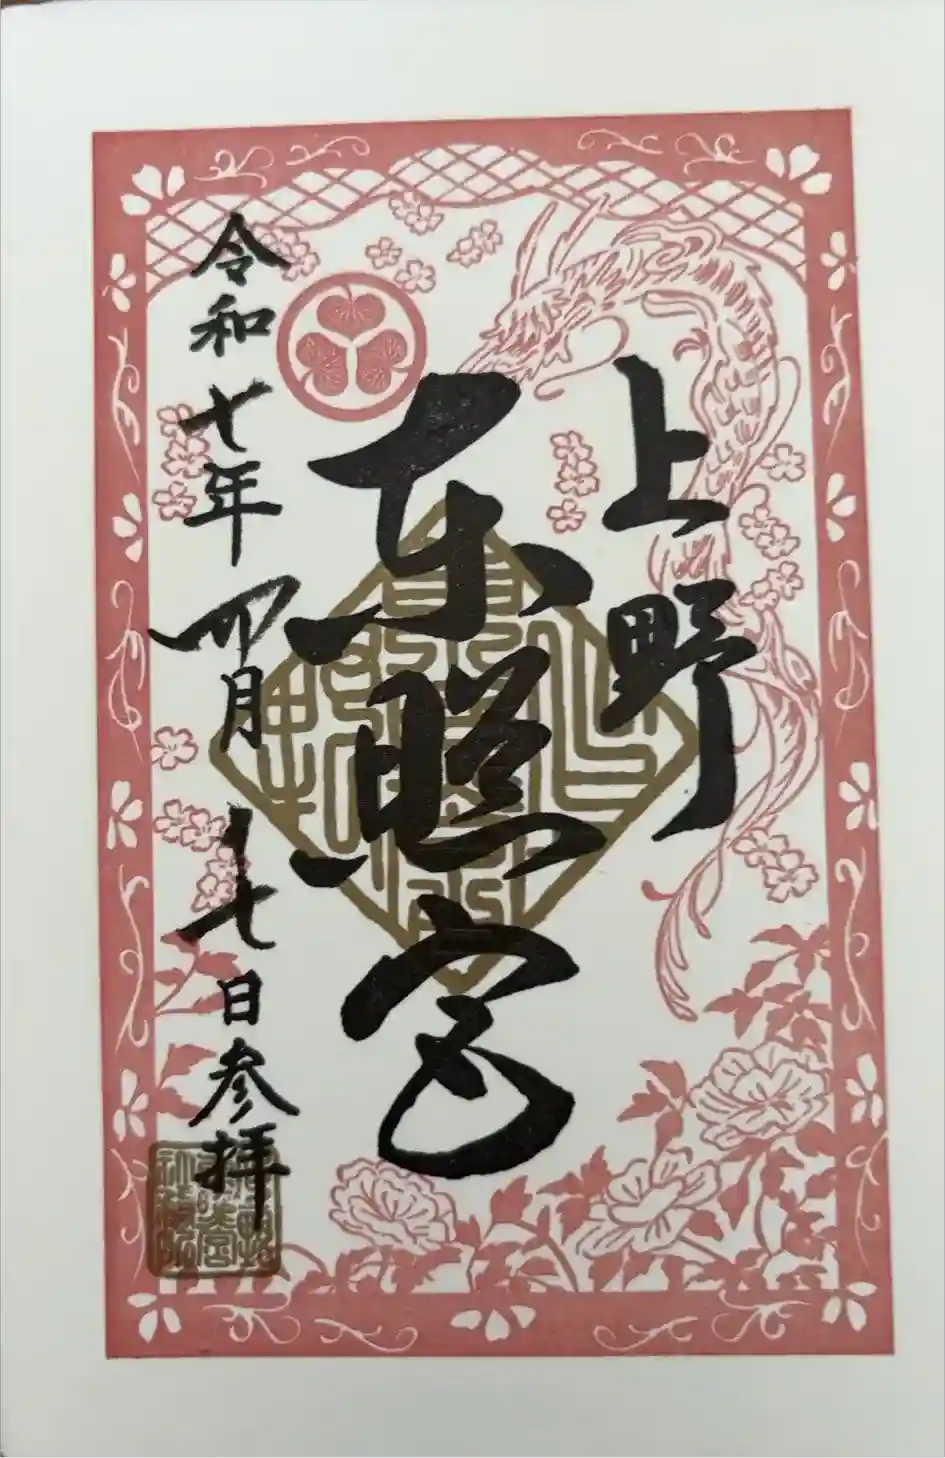 上野
東照宮
令和七年四月十七日参拝